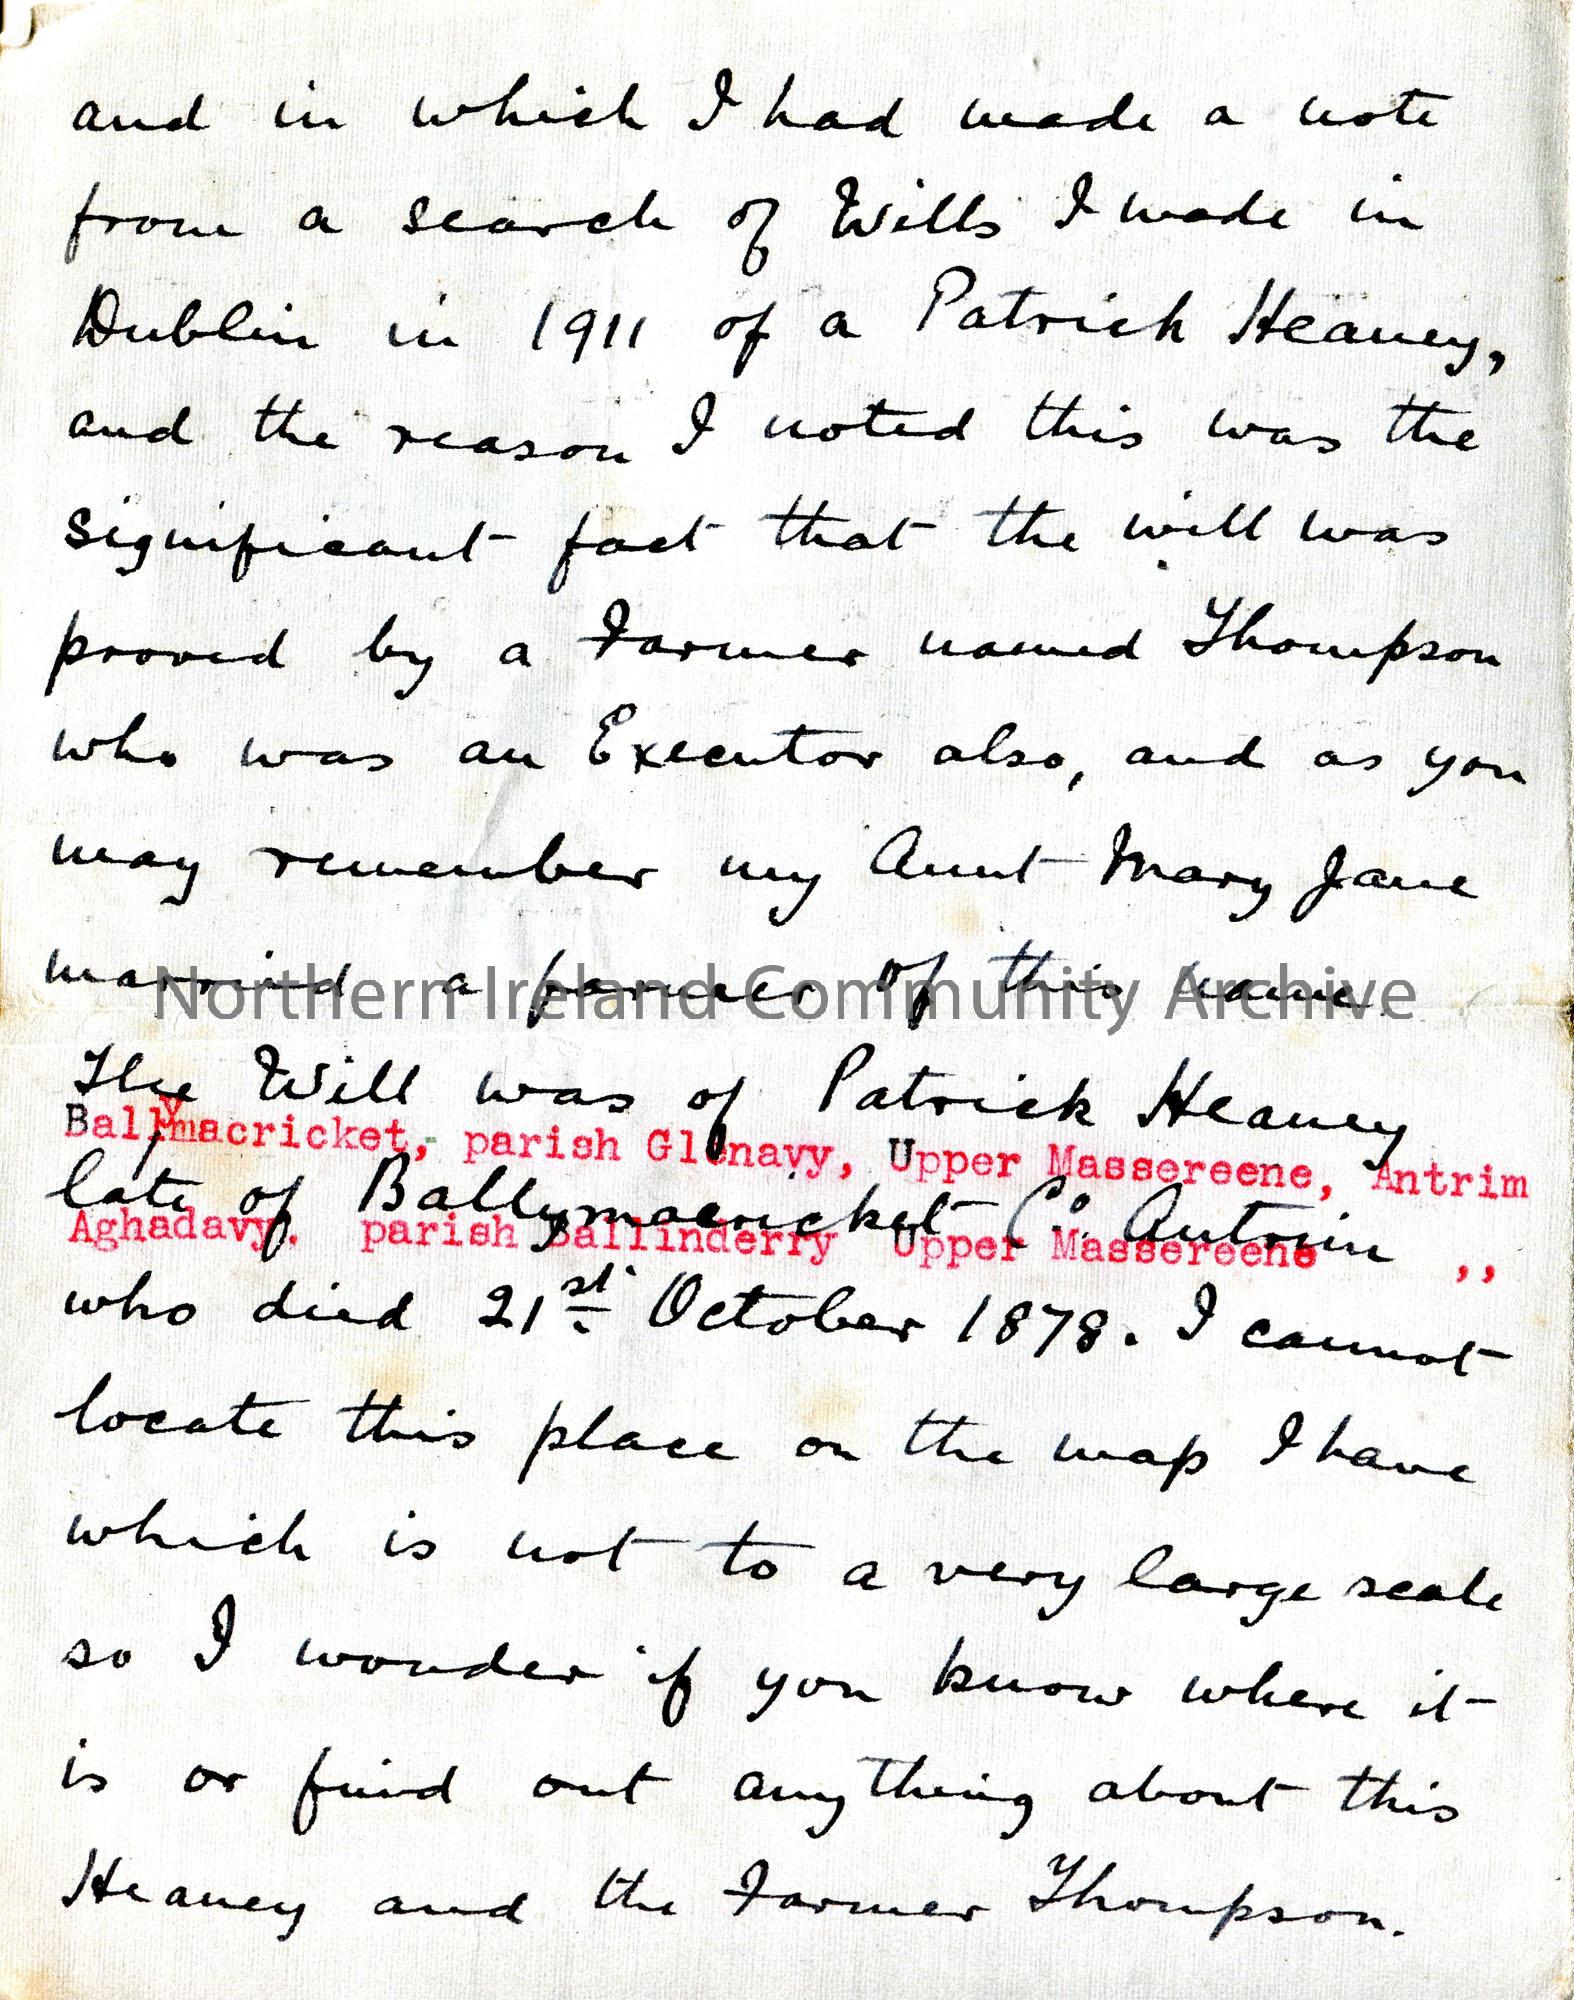 and in which I had made a note
from a search of Wills I made in
Dublin in 1911 of a Patrick Heaney,
and the reason I noted this was the
significant fact that the will was
proved by a Farmer named Thompson
who was an Executor also, and as you
may remember my Aunt Mary Jane
married a farmer of this name.
Northern Ireland Community Archive
The Will was of Patrick Heaney
Ballymacricket, parish Glenavy, Upper Massereene, Antrim
late of Ballymacricket Co. Antrim
Aghadavy, parish Ballinderry Upper Massereene ,,
who died 21st October 1878. I cannot
locate this place on the map I have
which is not to a very large scale
so I wonder if you know where it
is or find out anything about this
Heaney and the Farmer Thompson.